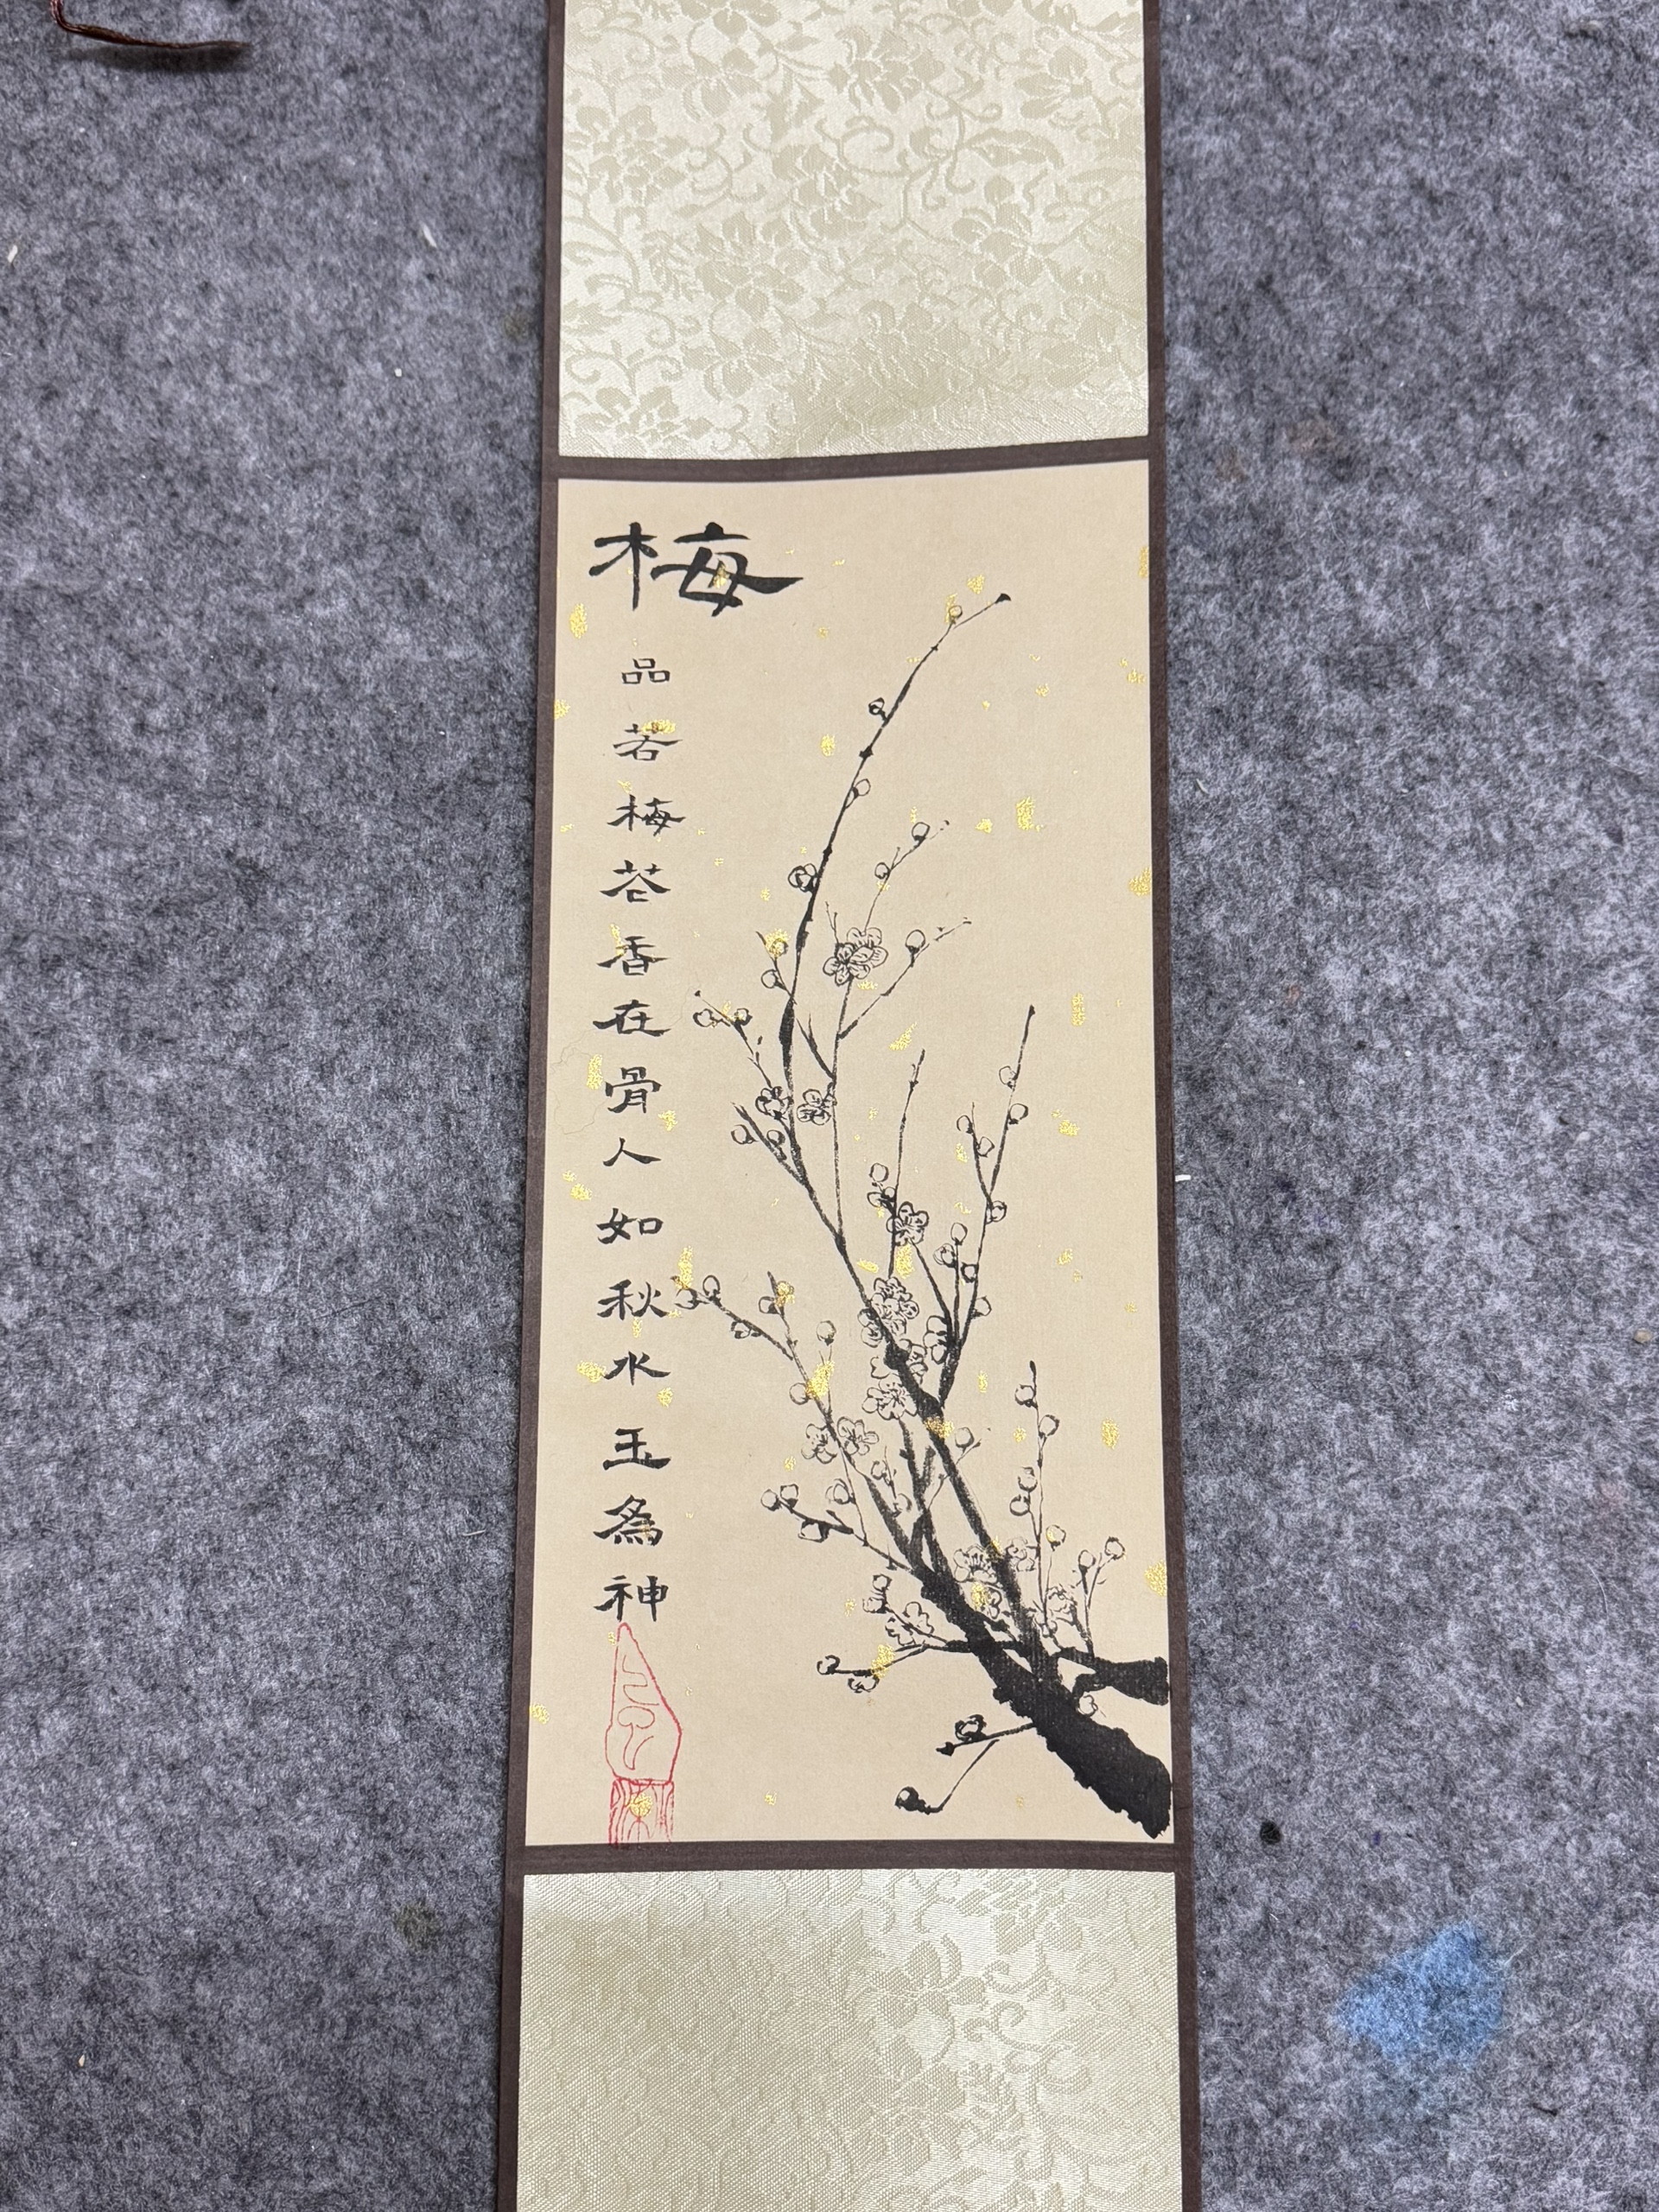 梅
品若梅花香在骨人如秋水玉為神